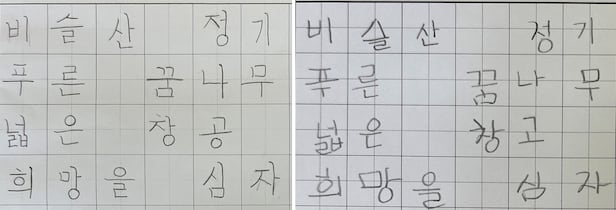 비슬산 정기
푸른 꿈나무
넓은 창공
희망을 심자
비슬산 정기
푸른 꿈나무
넓은 창고
희망을 심자